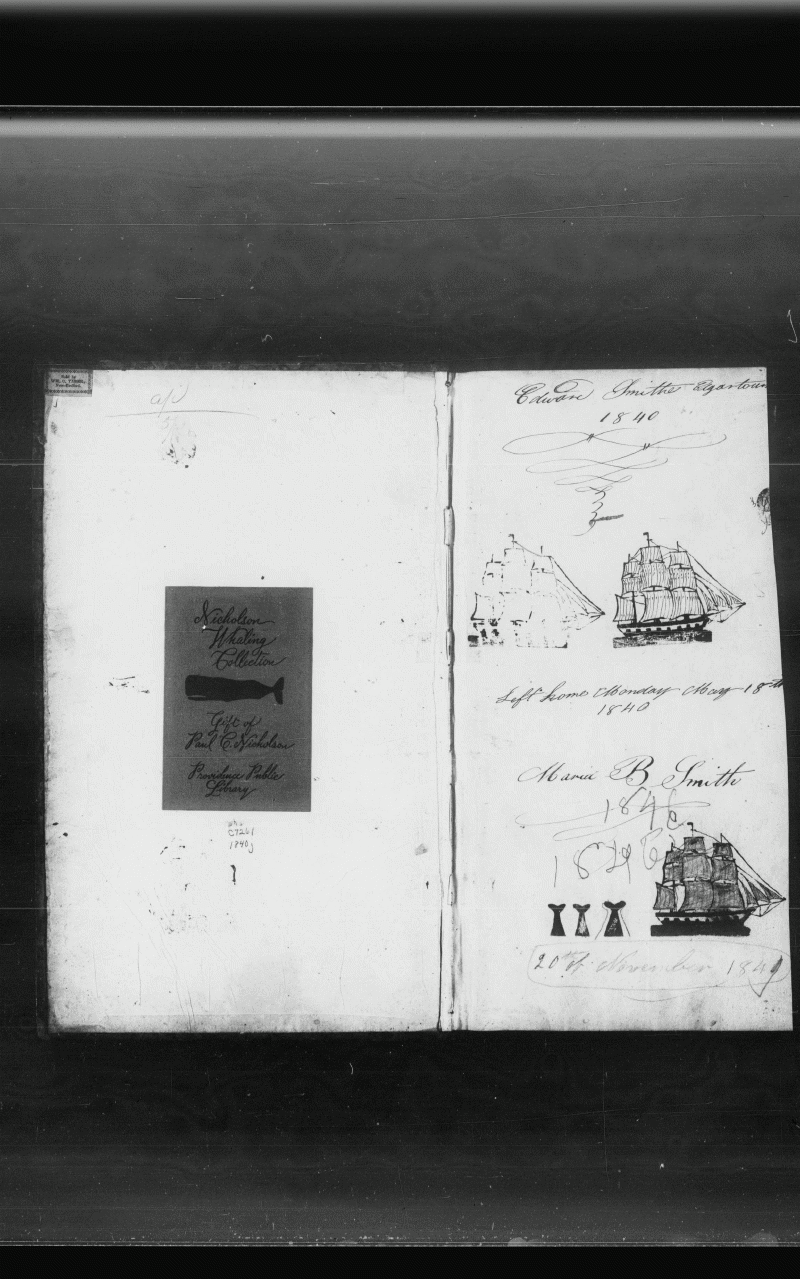 Sold by
WM. C. TABER,
New-Bedford.
Nicholson
Whaling
Collection
Gift of
Paul C. Nicholson
Providence Public
Library
Wh.
C7261
1840j
Edward Smiths Edgartown
1840
Left home Monday May 18th
1840
Maria B Smith
1846
1846
20th of November 1849